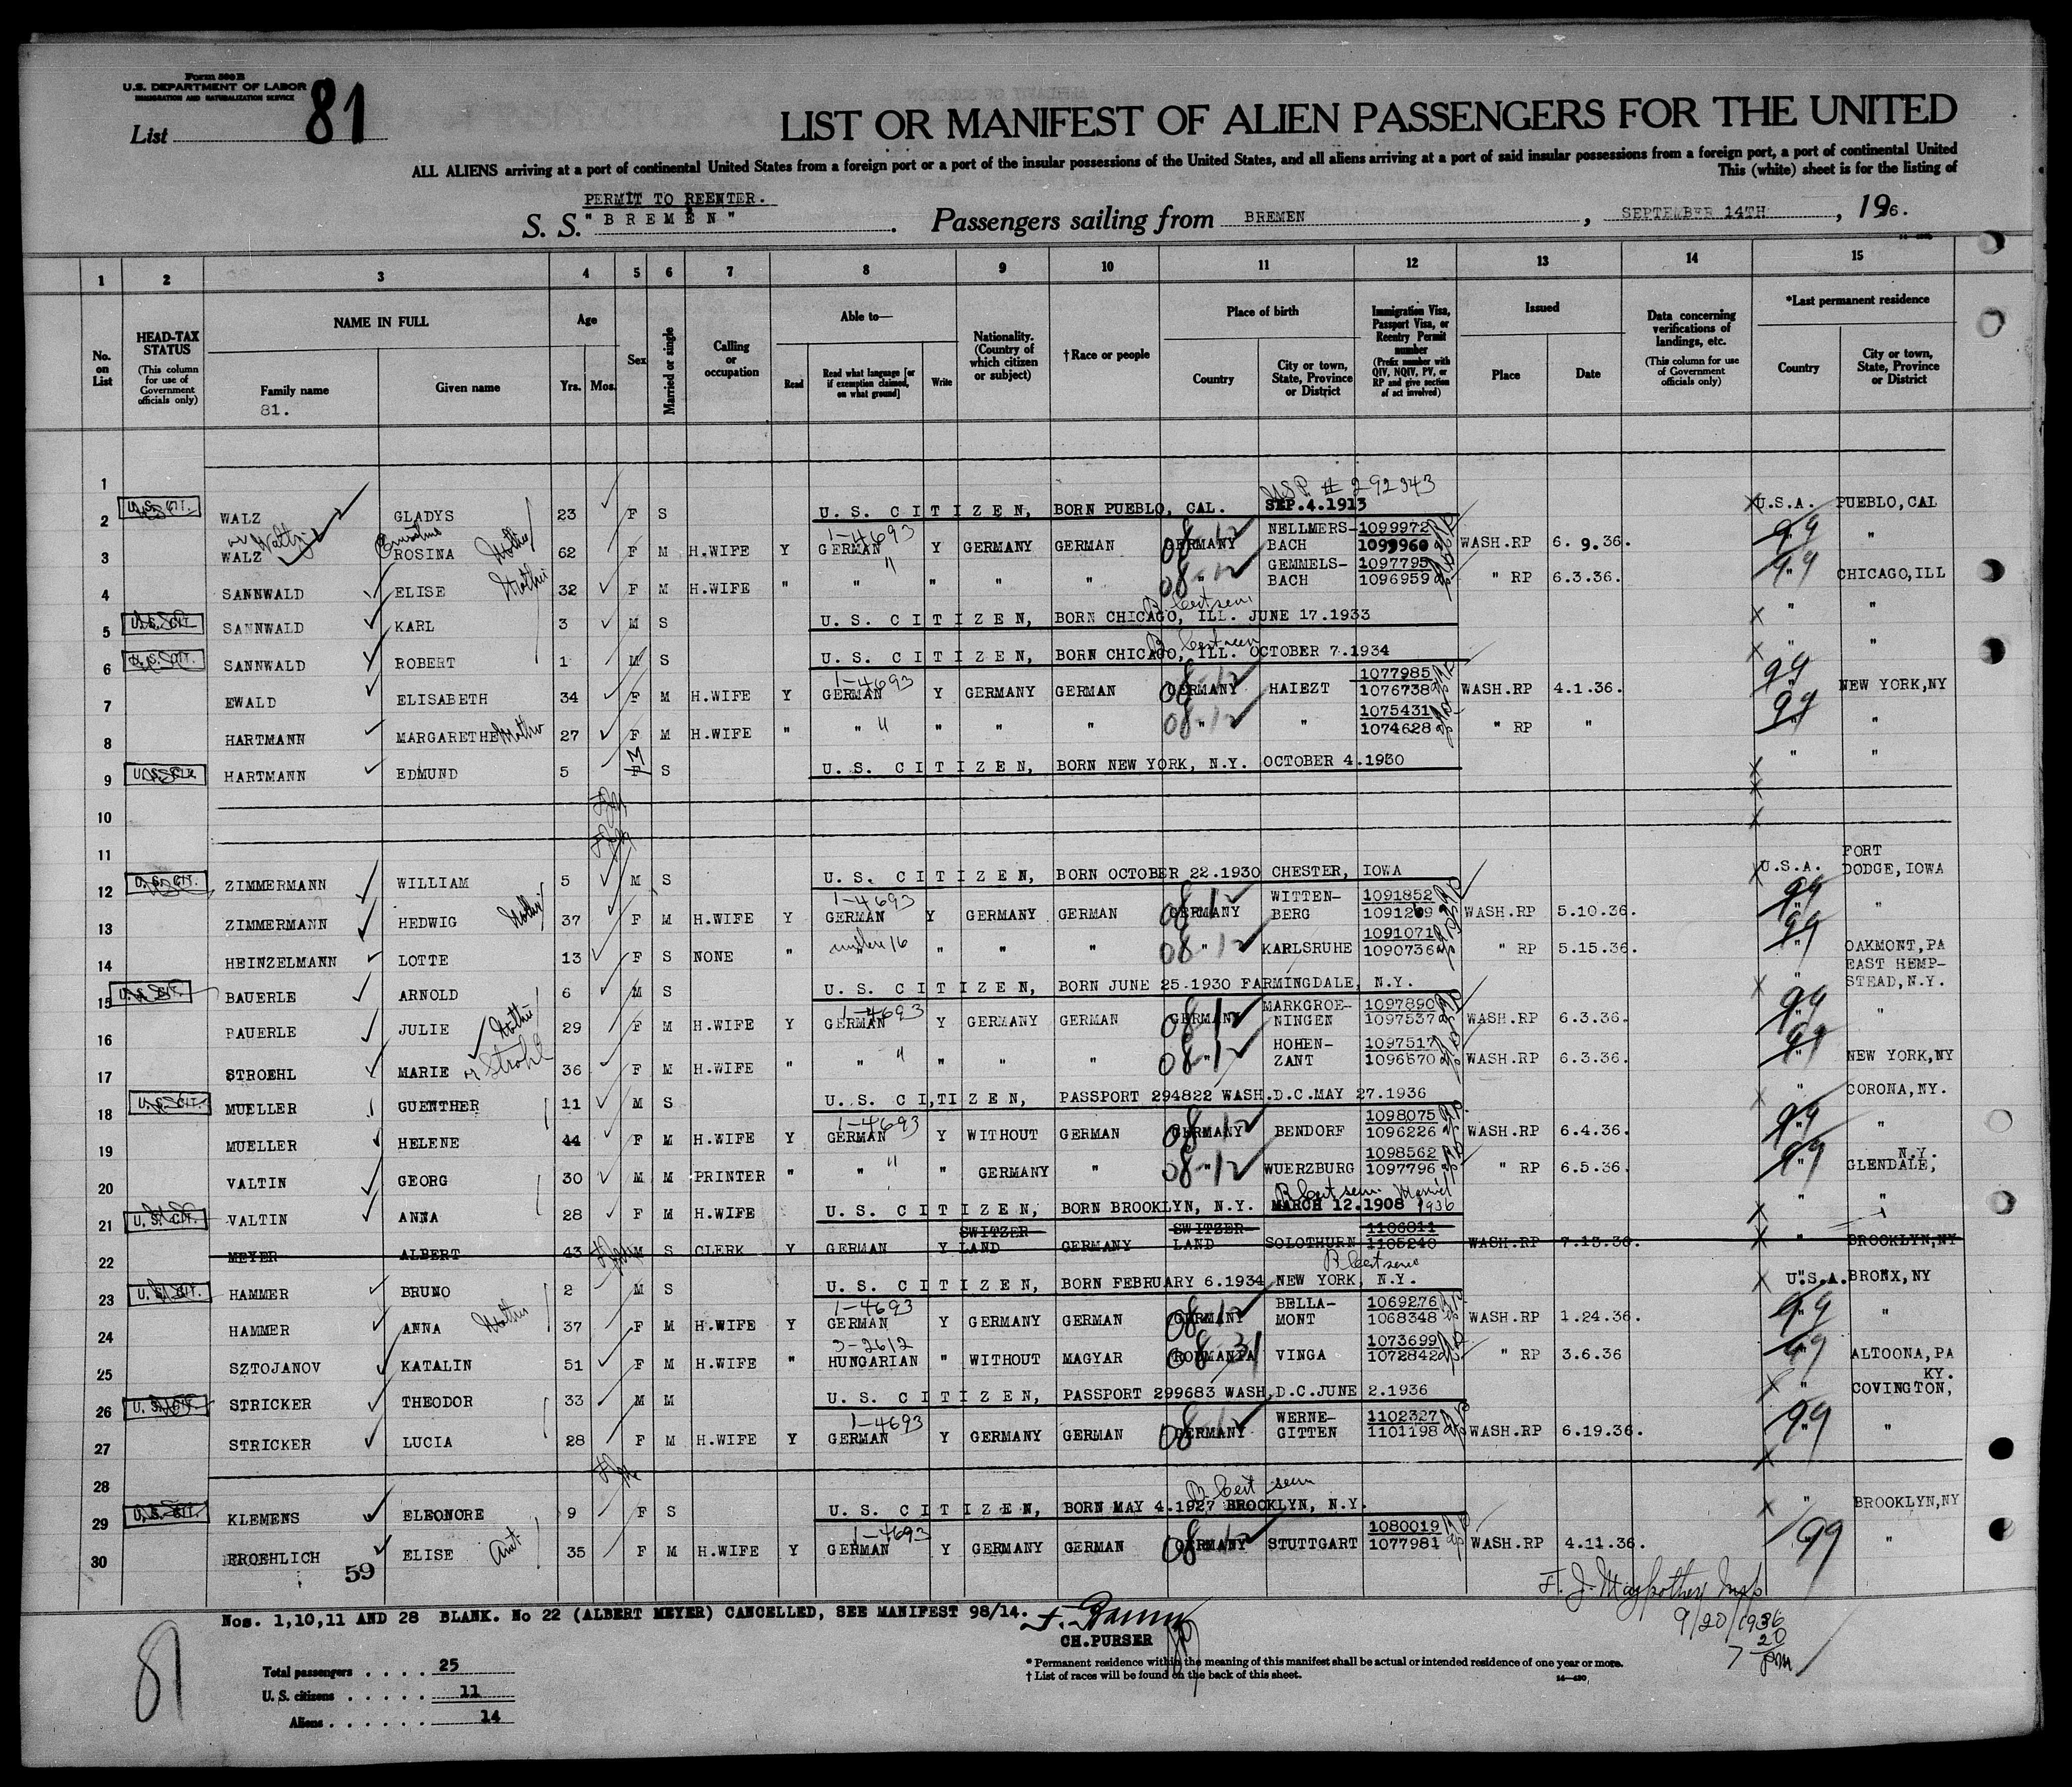 Form 500 B
U.S. DEPARTMENT OF LABOR
IMMIGRATION AND NATURALIZATION SERVICE
List 81
LIST OR MANIFEST OF ALIEN PASSENGERS FOR THE UNITED
ALL ALIENS arriving at a port of continental United States from a foreign port or a port of the insular possessions of the United States, and all aliens arriving at a port of said insular possessions from a foreign port, a port of continental United
This (white) sheet is for the listing of
PERMIT TO REENTER.
S. S. "BREMEN". Passengers sailing from BREMEN, SEPTEMBER 14TH, 1936.
1 2 3 4 5 6 7 8 9 10 11 12 13 14 15
No. on List
HEAD-TAX STATUS (This column for use of Government officials only)
NAME IN FULL Family name Given name
81.
Age Yrs. Mos.
Sex
Married or single
Calling or occupation
Able to— Read Read what language [or if exemption claimed, on what ground] Write
Nationality. (Country of which citizen or subject)
†Race or people
Place of birth Country City or town, State, Province or District
Immigration Visa, Passport Visa, or Reentry Permit number (Prefix number with QIV, NQIV, PV, or RP and give section of act involved)
Issued Place Date
Data concerning verifications of landings, etc. (This column for use of Government officials only)
*Last permanent residence Country City or town, State, Province or District
1
USP # 292343
2 U.S. CIT. WALZ GLADYS 23 F S U. S. CITIZEN, BORN PUEBLO, CAL. SEP.4.1913 U.S.A. PUEBLO, CAL
or Waltz
3 WALZ ROSINA Mother 62 F M H.WIFE Y 1-4693 GERMAN Y GERMANY GERMAN 08-12 GERMANY NELLMERS-BACH 1099972 1099960 WASH.RP 6.9.36. 99 "
4 SANNWALD ELISE Mother 32 F M H.WIFE " " " " " 08-12 " GEMMELS-BACH 1097795 1096959 " RP 6.3.36. 99 " CHICAGO, ILL
5 U.S. CIT. SANNWALD KARL 3 M S U. S. CITIZEN, BORN CHICAGO, ILL. JUNE 17.1933 B Cert seen " "
6 U.S. CIT. SANNWALD ROBERT 1 M S U. S. CITIZEN, BORN CHICAGO, ILL. OCTOBER 7.1934 B Cert seen " "
7 EWALD ELISABETH 34 F M H.WIFE Y 1-4693 GERMAN Y GERMANY GERMAN 08-12 GERMANY HAIEZT 1077985 1076738 WASH.RP 4.1.36. 99 NEW YORK, NY
8 HARTMANN MARGARETHE Mother 27 F M H.WIFE " " " " " 08-12 " " 1075431 1074628 " RP " 99 " "
9 U.S. CIT. HARTMANN EDMUND 5 M F S U. S. CITIZEN, BORN NEW YORK, N.Y. OCTOBER 4.1930 " "
10
11
12 U.S. CIT. ZIMMERMANN WILLIAM 5 M S U. S. CITIZEN, BORN OCTOBER 22.1930 CHESTER, IOWA U.S.A. FORT DODGE, IOWA
13 ZIMMERMANN HEDWIG Mother 37 F M H.WIFE Y 1-4693 GERMAN Y GERMANY GERMAN 08-12 GERMANY WITTEN-BERG 1091852 1091269 WASH.RP 5.10.36. 99 "
14 HEINZELMANN LOTTE 13 F S NONE " under 16 " " " 08-12 " KARLSRUHE 1091071 1090736 " RP 5.15.36. 99 " OAKMONT, PA
15 U.S. CIT. BAUERLE ARNOLD 6 M S U. S. CITIZEN, BORN JUNE 25.1930 FARMINGDALE, N.Y. " EAST HEMP-STEAD, N.Y.
16 BAUERLE JULIE Mother 29 F M H.WIFE Y 1-4693 GERMAN Y GERMANY GERMAN 08-12 GERMANY MARKGROE-NINGEN 1097890 1097537 WASH.RP 6.3.36. 99 "
17 STROEHL MARIE or Strohl 36 F M H.WIFE " " " " " 08-12 " HOHEN-ZANT 1097517 1096670 WASH.RP 6.3.36. 99 " NEW YORK, NY
18 U.S. CIT. MUELLER GUENTHER 11 M S U. S. CITIZEN, PASSPORT 294822 WASH.D.C.MAY 27.1936 " CORONA, NY.
19 MUELLER HELENE 44 F M H.WIFE Y 1-4693 GERMAN Y WITHOUT GERMAN 08-12 GERMANY BENDORF 1098075 1096226 WASH.RP 6.4.36. 99 " "
20 VALTIN GEORG 30 M M PRINTER " " " GERMANY " 08-12 " WUERZBURG 1098562 1097796 " RP 6.5.36. 99 " N.Y. GLENDALE,
21 U.S. CIT. VALTIN ANNA 28 F M H.WIFE U. S. CITIZEN, BORN BROOKLYN, N.Y. MARCH 12.1908 B Cert seen Married 1936 " "
22 MEYER ALBERT 43 M S CLERK Y GERMAN Y SWITZER-LAND GERMANY SWITZER-LAND SOLOTHURN 1106011 1105240 WASH.RP 7.13.36. " BROOKLYN, NY
23 U.S. CIT. HAMMER BRUNO 2 M S U. S. CITIZEN, BORN FEBRUARY 6.1934 NEW YORK, N.Y. B Cert seen U.S.A. BRONX, NY
24 HAMMER ANNA Mother 37 F M H.WIFE Y 1-4693 GERMAN Y GERMANY GERMAN 08-12 GERMANY BELLA-MONT 1069276 1068348 WASH.RP 1.24.36. 99 "
25 SZTOJANOV KATALIN 51 F M H.WIFE " 3-2612 HUNGARIAN " WITHOUT MAGYAR 08-31 ROUMANIA VINGA 1073699 1072842 " RP 3.6.36 99 ALTOONA, PA
26 U.S. CIT. STRICKER THEODOR 33 M M U. S. CITIZEN, PASSPORT 299683 WASH.D.C.JUNE 2.1936 " KY. COVINGTON,
27 STRICKER LUCIA 28 F M H.WIFE Y 1-4693 GERMAN Y GERMANY GERMAN 08-12 GERMANY WERNE-GITTEN 1102327 1101198 WASH.RP 6.19.36. 99 " "
28
29 U.S. CIT. KLEMENS ELEONORE 9 F S U. S. CITIZEN, BORN MAY 4.1927 BROOKLYN, N.Y. B Cert seen " BROOKLYN, NY
30 FROEHLICH ELISE Aunt 35 F M H.WIFE Y 1-4693 GERMAN Y GERMANY GERMAN 08-12 GERMANY STUTTGART 1080019 1077981 WASH.RP 4.11.36. 99 "
59
F. J. Insp
9/20/1936
7 20 pm
Nos. 1,10,11 AND 28 BLANK. No 22 (ALBERT MEYER) CANCELLED, SEE MANIFEST 98/14.
CH.PURSER
81
Total passengers . . . . 25
U. S. citizens . . . . . 11
Aliens . . . . . . 14
* Permanent residence within the meaning of this manifest shall be actual or intended residence of one year or more.
† List of races will be found on the back of this sheet.
14—430